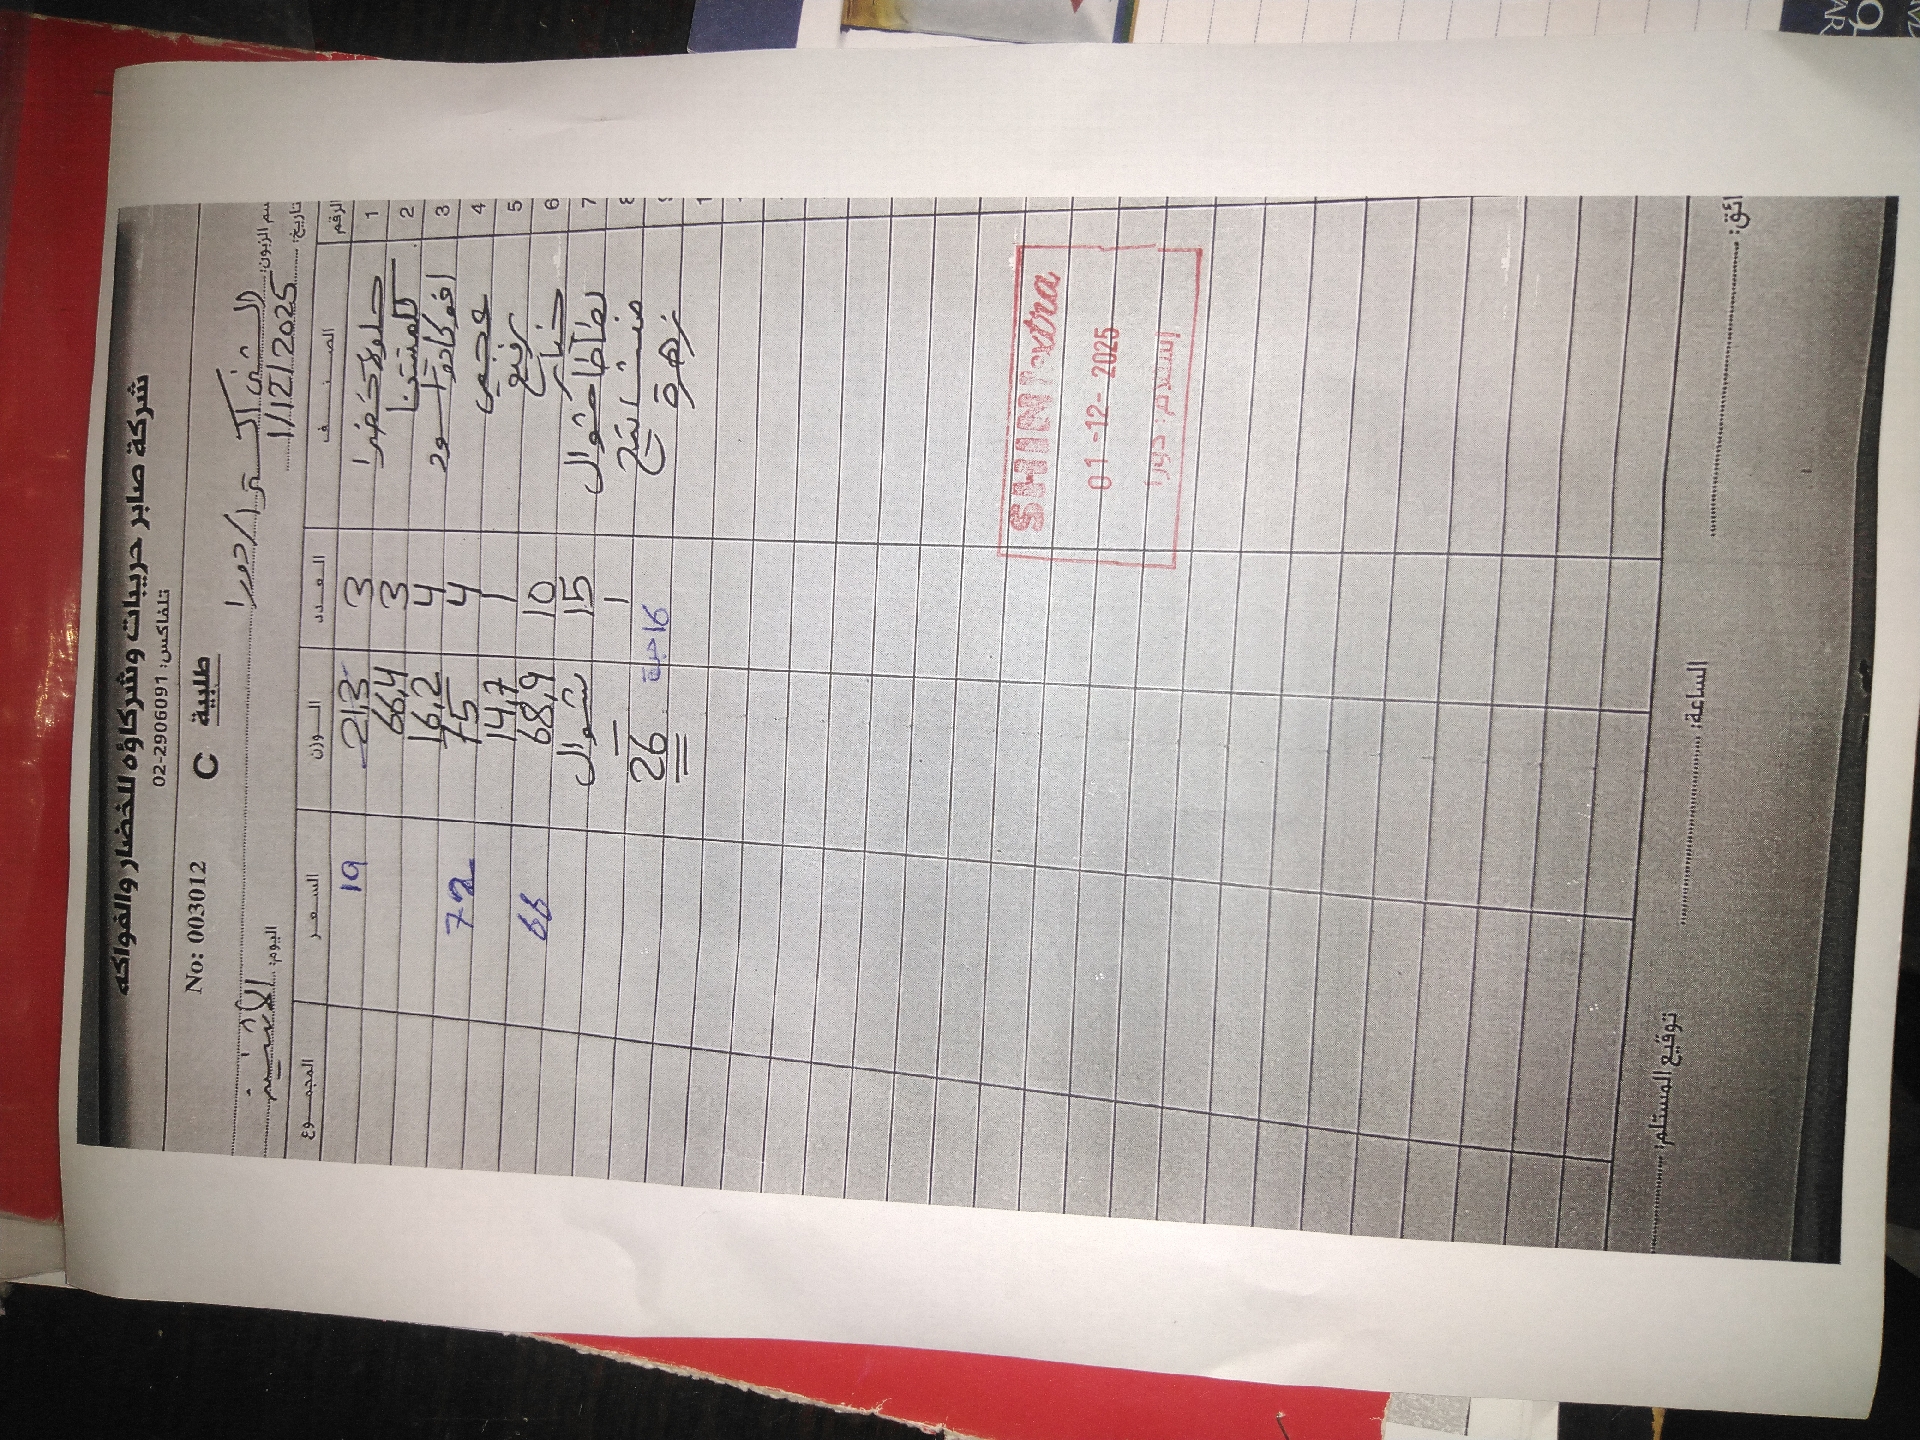 شركة صابر حريبات وشركاؤه للخضار والفواكه
تلفاكس: 02-2906091
No: 003012 C طلبية
سم الزبون: الشني اكسترا/دورا
تاريخ: 1/12/2025 اليوم: الاثنين
الرقم الصنف العدد الوزن السعر المجموع
1 خضرا 3 21,3 19
2 كلمنتينا 3 66,4
3 افوكادو 4 16,2
4 عجمي 4 75 72
5 1 14,7
6 خيار 10 68,9 66
7 بطاطا شوال 15 شوال
8 1 —
زهرة 16 حبة 26
SHINI extra
01-12-2025
إستلام: دورا
ائق:
الساعة:
توقيع المستلم: